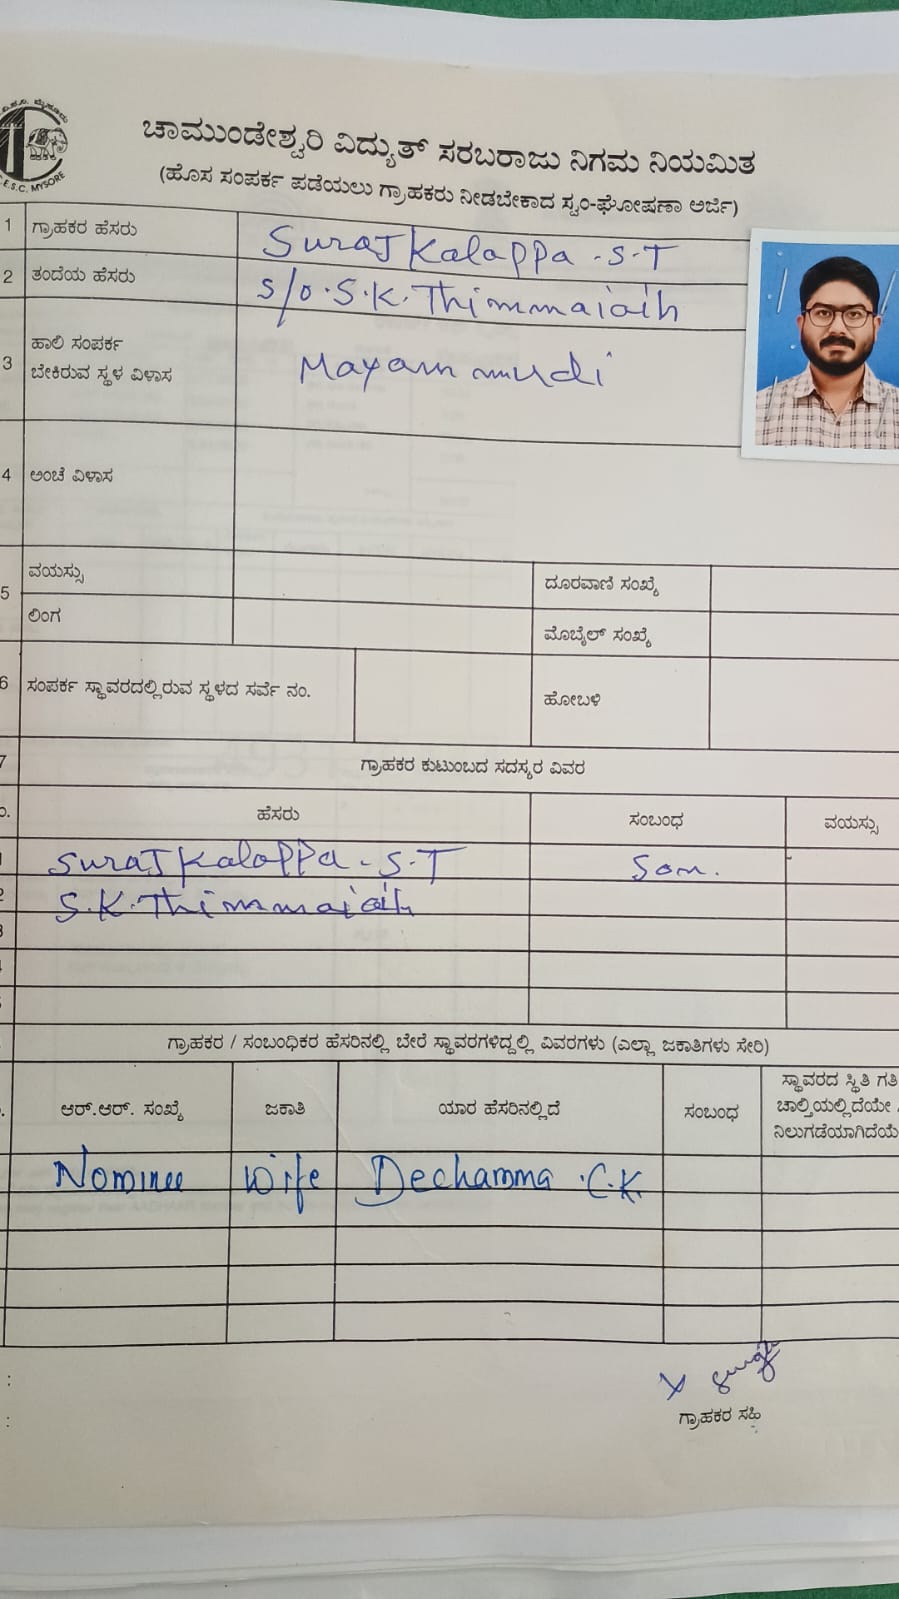 ಚಾಮುಂಡೇಶ್ವರಿ ವಿದ್ಯುತ್ ಸರಬರಾಜು ನಿಗಮ ನಿಯಮಿತ
C.E.S.C. MYSORE
(ಹೊಸ ಸಂಪರ್ಕ ಪಡೆಯಲು ಗ್ರಾಹಕರು ನೀಡಬೇಕಾದ ಸ್ವಂ-ಘೋಷಣಾ ಅರ್ಜಿ)
1 ಗ್ರಾಹಕರ ಹೆಸರು Suraj Kalappa . S . T
2 ತಂದೆಯ ಹೆಸರು S/o . S . K . Thimmaiaih
3 ಹಾಲಿ ಸಂಪರ್ಕ
ಬೇಕಿರುವ ಸ್ಥಳ ವಿಳಾಸ Mayammudi
4 ಅಂಚೆ ವಿಳಾಸ
5 ವಯಸ್ಸು ದೂರವಾಣಿ ಸಂಖ್ಯೆ
ಲಿಂಗ ಮೊಬೈಲ್ ಸಂಖ್ಯೆ
6 ಸಂಪರ್ಕ ಸ್ಥಾವರದಲ್ಲಿರುವ ಸ್ಥಳದ ಸರ್ವೆ ನಂ. ಹೋಬಳಿ
7 ಗ್ರಾಹಕರ ಕುಟುಂಬದ ಸದಸ್ಯರ ವಿವರ
ಹೆಸರು ಸಂಬಂಧ ವಯಸ್ಸು
Suraj Kaloppa . S . T Son.
2 S . K . Thimmaiaih
ಗ್ರಾಹಕರ / ಸಂಬಂಧಿಕರ ಹೆಸರಿನಲ್ಲಿ ಬೇರೆ ಸ್ಥಾವರಗಳಿದ್ದಲ್ಲಿ ವಿವರಗಳು (ಎಲ್ಲಾ ಜಕಾತಿಗಳು ಸೇರಿ)
ಆರ್.ಆರ್. ಸಂಖ್ಯೆ ಜಕಾತಿ ಯಾರ ಹೆಸರಿನಲ್ಲಿದೆ ಸಂಬಂಧ ಸ್ಥಾವರದ ಸ್ಥಿತಿ ಗತಿ
ಚಾಲ್ತಿಯಲ್ಲಿದೆಯೇ
ನಿಲುಗಡೆಯಾಗಿದೆಯೆ
Nominee Wife Dechamma . C . K .
ಗ್ರಾಹಕರ ಸಹಿ